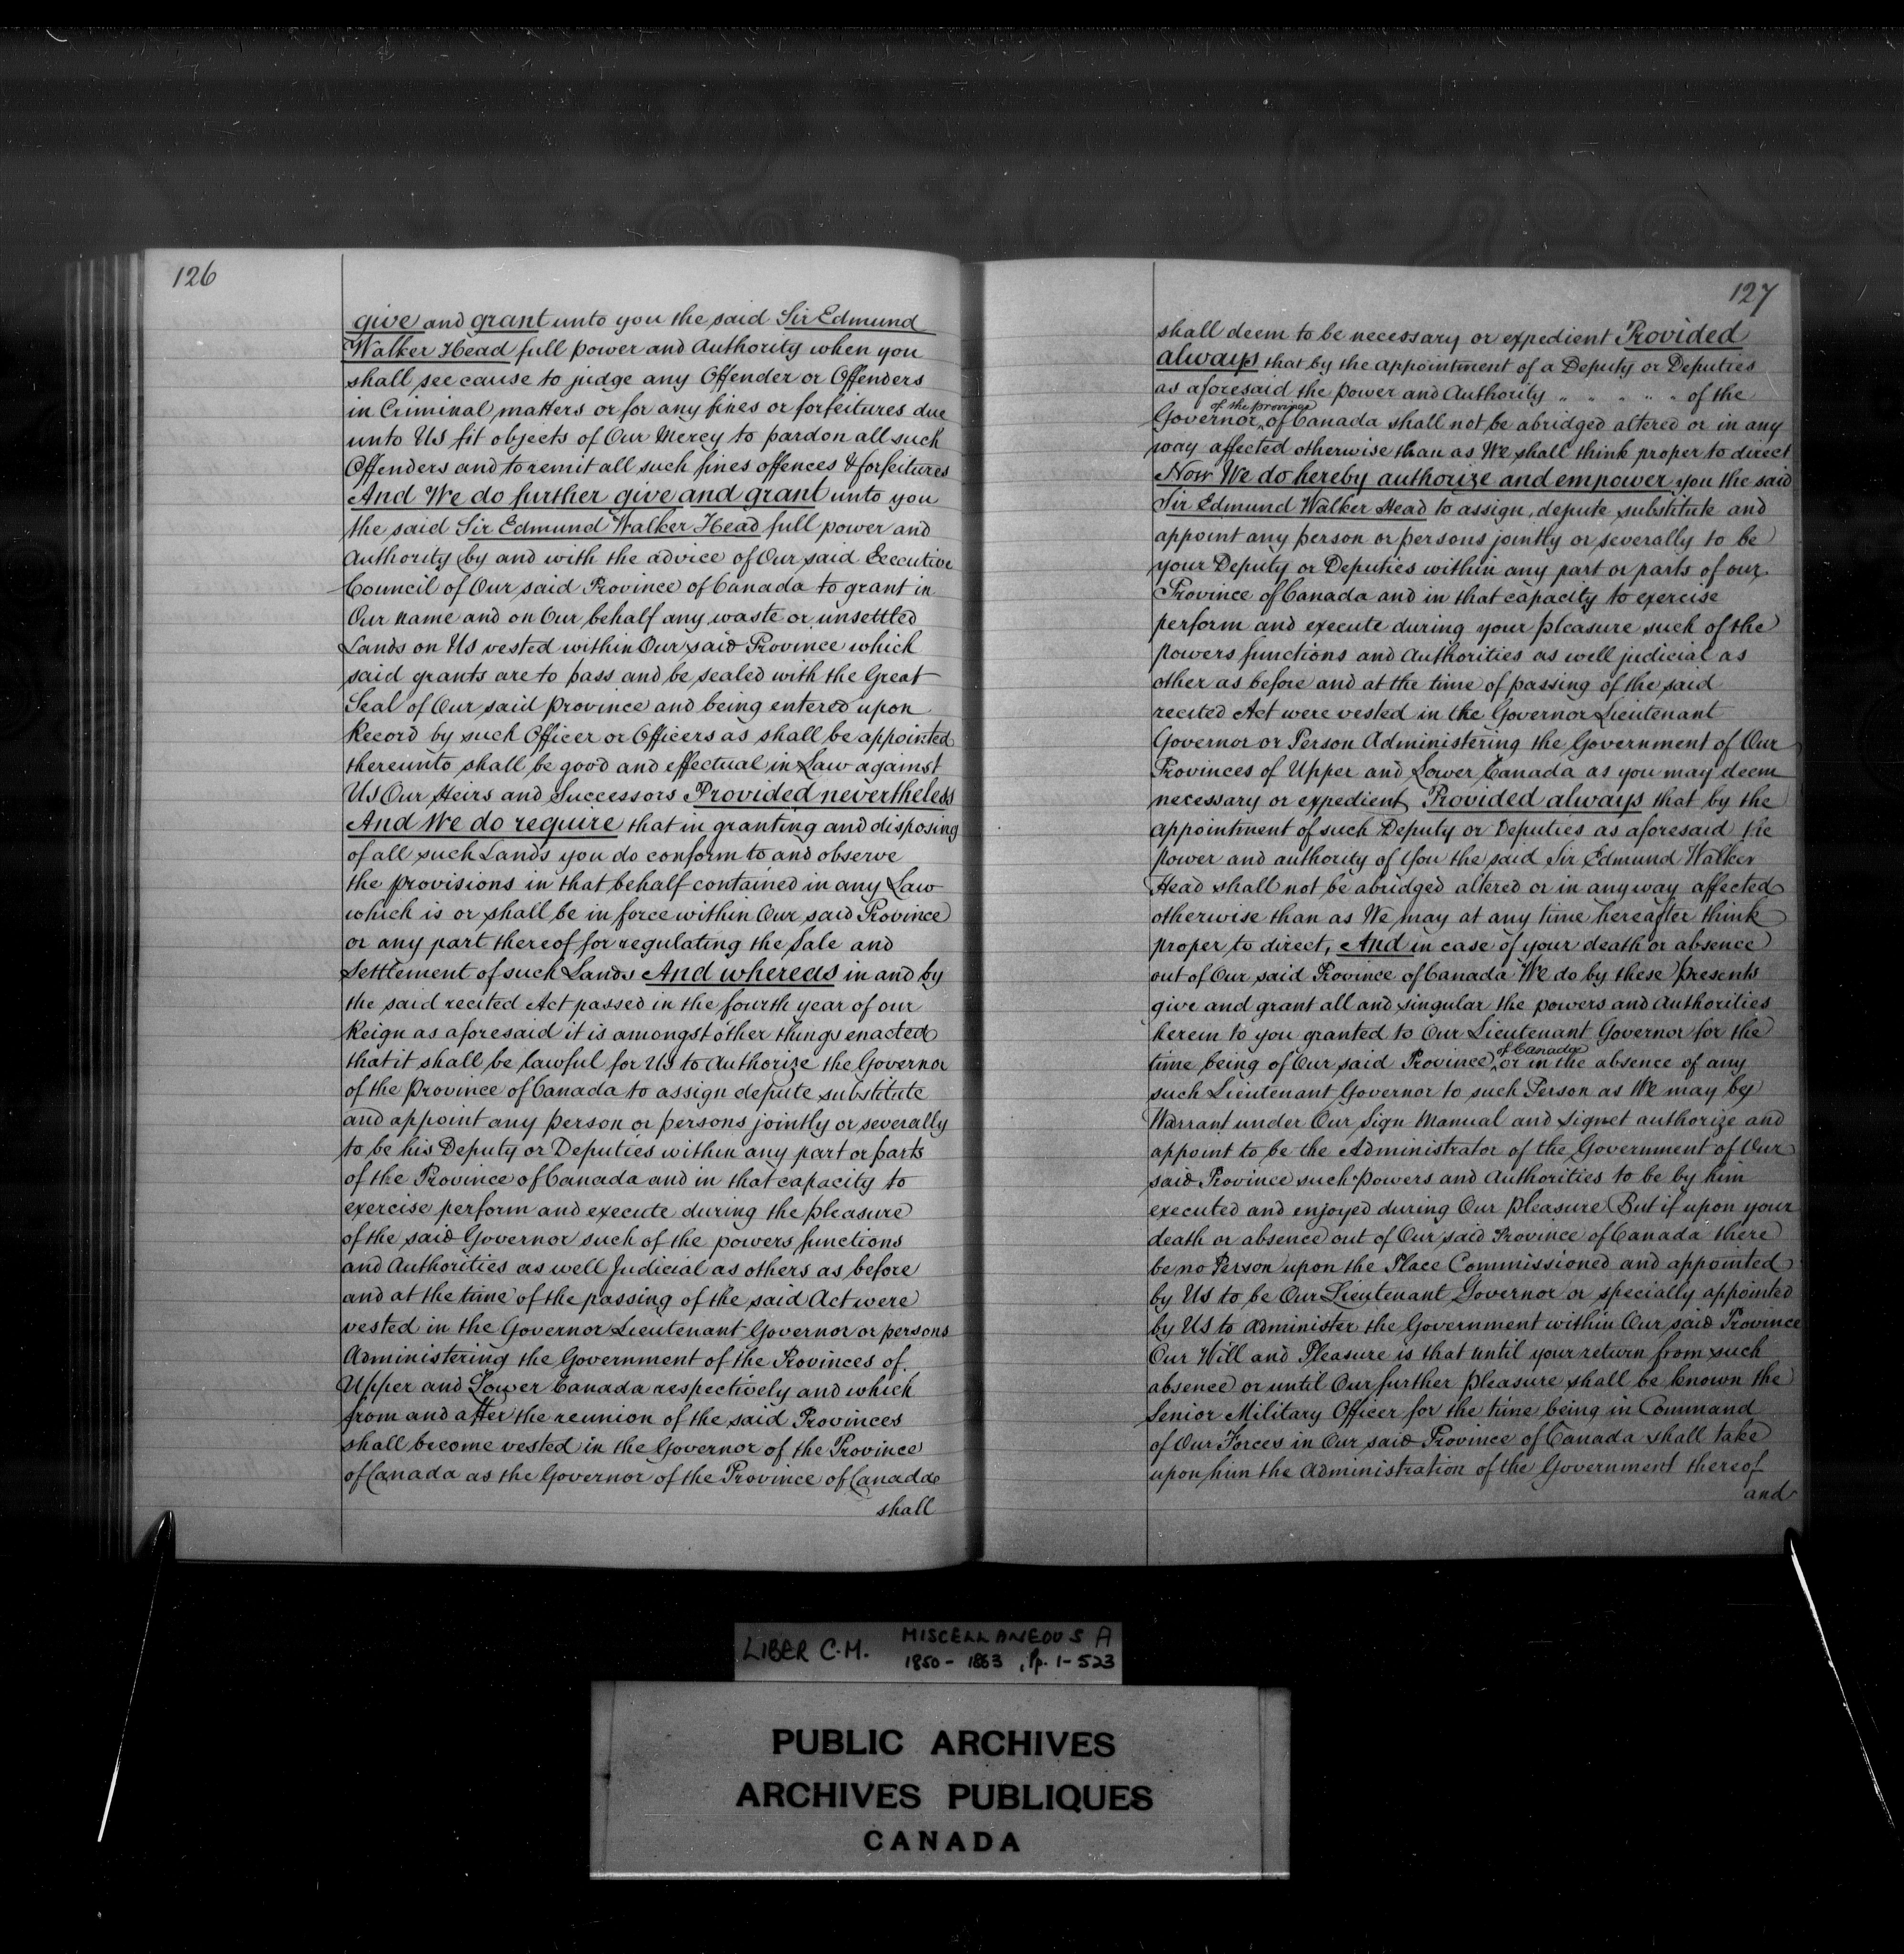 126
give and grant unto you the said Sir Edmund
Walker Head full power and Authority when you
shall see cause to judge any Offender or Offenders
in Criminal matters or for any fines or forfeitures due
unto Us fit objects of Our Mercy to pardon all such
Offenders and to remit all such fines offences & forfeitures
And We do further give and grant unto you
the said Sir Edmund Walker Head full power and
Authority by and with the advice of Our said Executive
Council of Our said Province of Canada to grant in
Our name and on Our behalf any waste or unsettled
Lands on Us vested within Our said Province which
said grants are to pass and be sealed with the Great
Seal of Our said province and being entered upon
Record by such Officer or Officers as shall be appointed
thereunto shall be good and effectual in Law against
Us Our Heirs and Successors Provided nevertheless
And We do require that in granting and disposing
of all such Lands you do conform to and observe
the provisions in that behalf contained in any Law
which is or shall be in force within Our said Province
or any part thereof for regulating the Sale and
Settlement of such Lands And whereas in and by
the said recited Act passed in the fourth year of our
Reign as aforesaid it is amongst other things enacted
that it shall be lawful for Us to Authorize the Governor
of the Province of Canada to assign depute substitute
and appoint any person or persons jointly or severally
to be his Deputy or Deputies within any part or parts
of the Province of Canada and in that capacity to
exercise perform and execute during the pleasure
of the said Governor such of the powers functions
and Authorities as well Judicial as others as before
and at the time of the passing of the said Act were
vested in the Governor Lieutenant Governor or persons
Administering the Government of the Provinces of
Upper and Lower Canada respectively and which
from and after the reunion of the said Provinces
shall become vested in the Governor of the Province
of Canada as the Governor of the Province of Canada
shall
127
shall deem to be necessary or expedient Provided
always that by the appointment of a Deputy or Deputies
as aforesaid the power and Authority " " " " " of the
of the province
Governor of Canada shall not be abridged altered or in any
way affected otherwise than as We shall think proper to direct
Now We do hereby authorize and empower you the said
Sir Edmund Walker Head to assign, depute substitute and
appoint any person or persons jointly or severally to be
your Deputy or Deputies within any part or parts of our
Province of Canada and in that capacity to exercise
perform and execute during your pleasure such of the
powers functions and Authorities as well judicial as
other as before and at the time of passing of the said
recited Act were vested in the Governor Lieutenant
Governor or Person Administering the Government of Our
Provinces of Upper and Lower Canada as you may deem
necessary or expedient Provided always that by the
appointment of such Deputy or Deputies as aforesaid the
power and authority of You the said Sir Edmund Walker
Head shall not be abridged altered or in any way affected
otherwise than as We may at any time hereafter think
proper to direct, And in case of your death or absence
out of Our said Province of Canada We do by these presents
give and grant all and singular the powers and Authorities
herein to you granted to Our Lieutenant Governor for the
of Canada
time being of Our said Province, or in the absence of any
such Lieutenant Governor to such Person as We may by
Warrant under Our Sign Manual and Signet authorize and
appoint to be the Administrator of the Government of Our
said Province such Powers and Authorities to be by him
executed and enjoyed during Our pleasure But if upon your
death or absence out of Our said Province of Canada there
be no Person upon the Place Commissioned and appointed
by Us to be Our Lieutenant Governor or specially appointed
by Us to Administer the Government within Our said Province
Our Will and Pleasure is that until your return from such
absence or until Our further pleasure shall be known the
Senior Military Officer for the time being in Command
of Our Forces in Our said Province of Canada shall take
upon him the Administration of the Government thereof
and
LIBER C.M. MISCELLANEOUS A
1850 - 1863, Pp. 1-523
PUBLIC ARCHIVES
ARCHIVES PUBLIQUES
CANADA